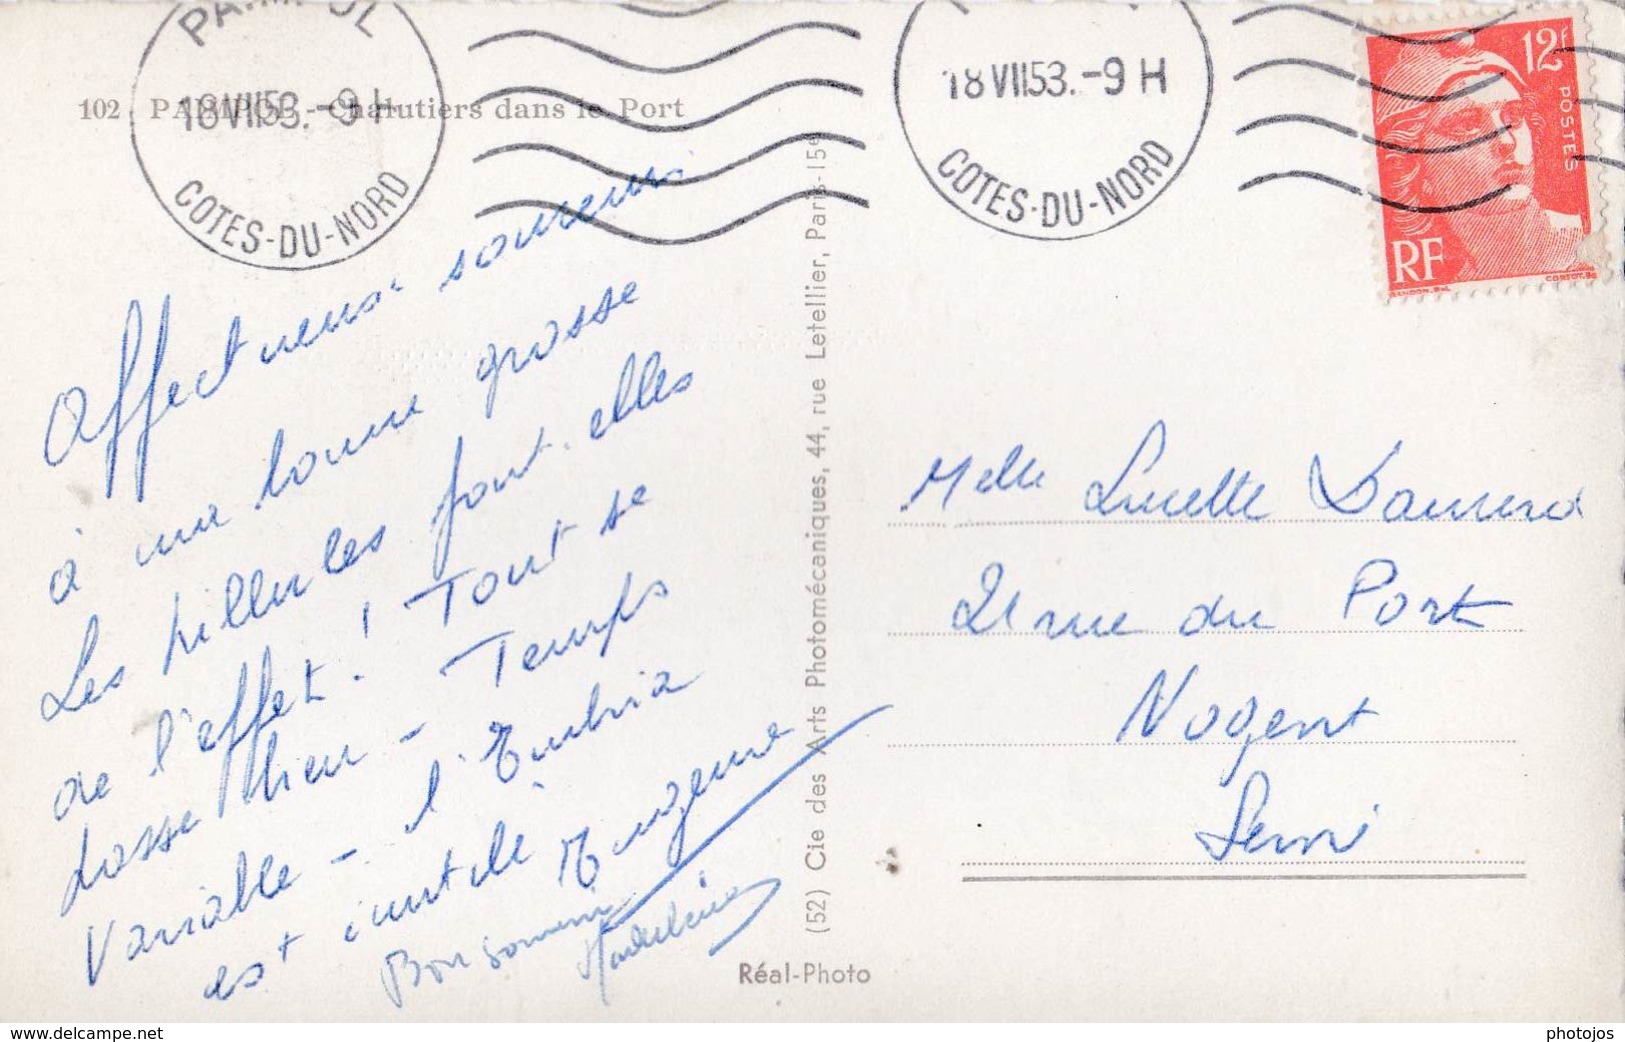 PAIMPOL
18 VII 53.-9 H
COTES-DU-NORD
18 VII 53.-9 H
COTES-DU-NORD
12F
POSTES
RF
102 PAIMPOL - Chalutiers dans le Port
Affectueux souvenir
à ma bonne grosse
Les pillules font-elles
de l'effet! Tout se
passe bien - Temps
Variable - l'
est inutile
Bon souvenir
(52) Cie des Arts Photomécaniques, 44, rue Letellier, Paris-15e
Réal-Photo
Melle Lucette
21 rue du Port
Nogent
delcampe.net
photojos